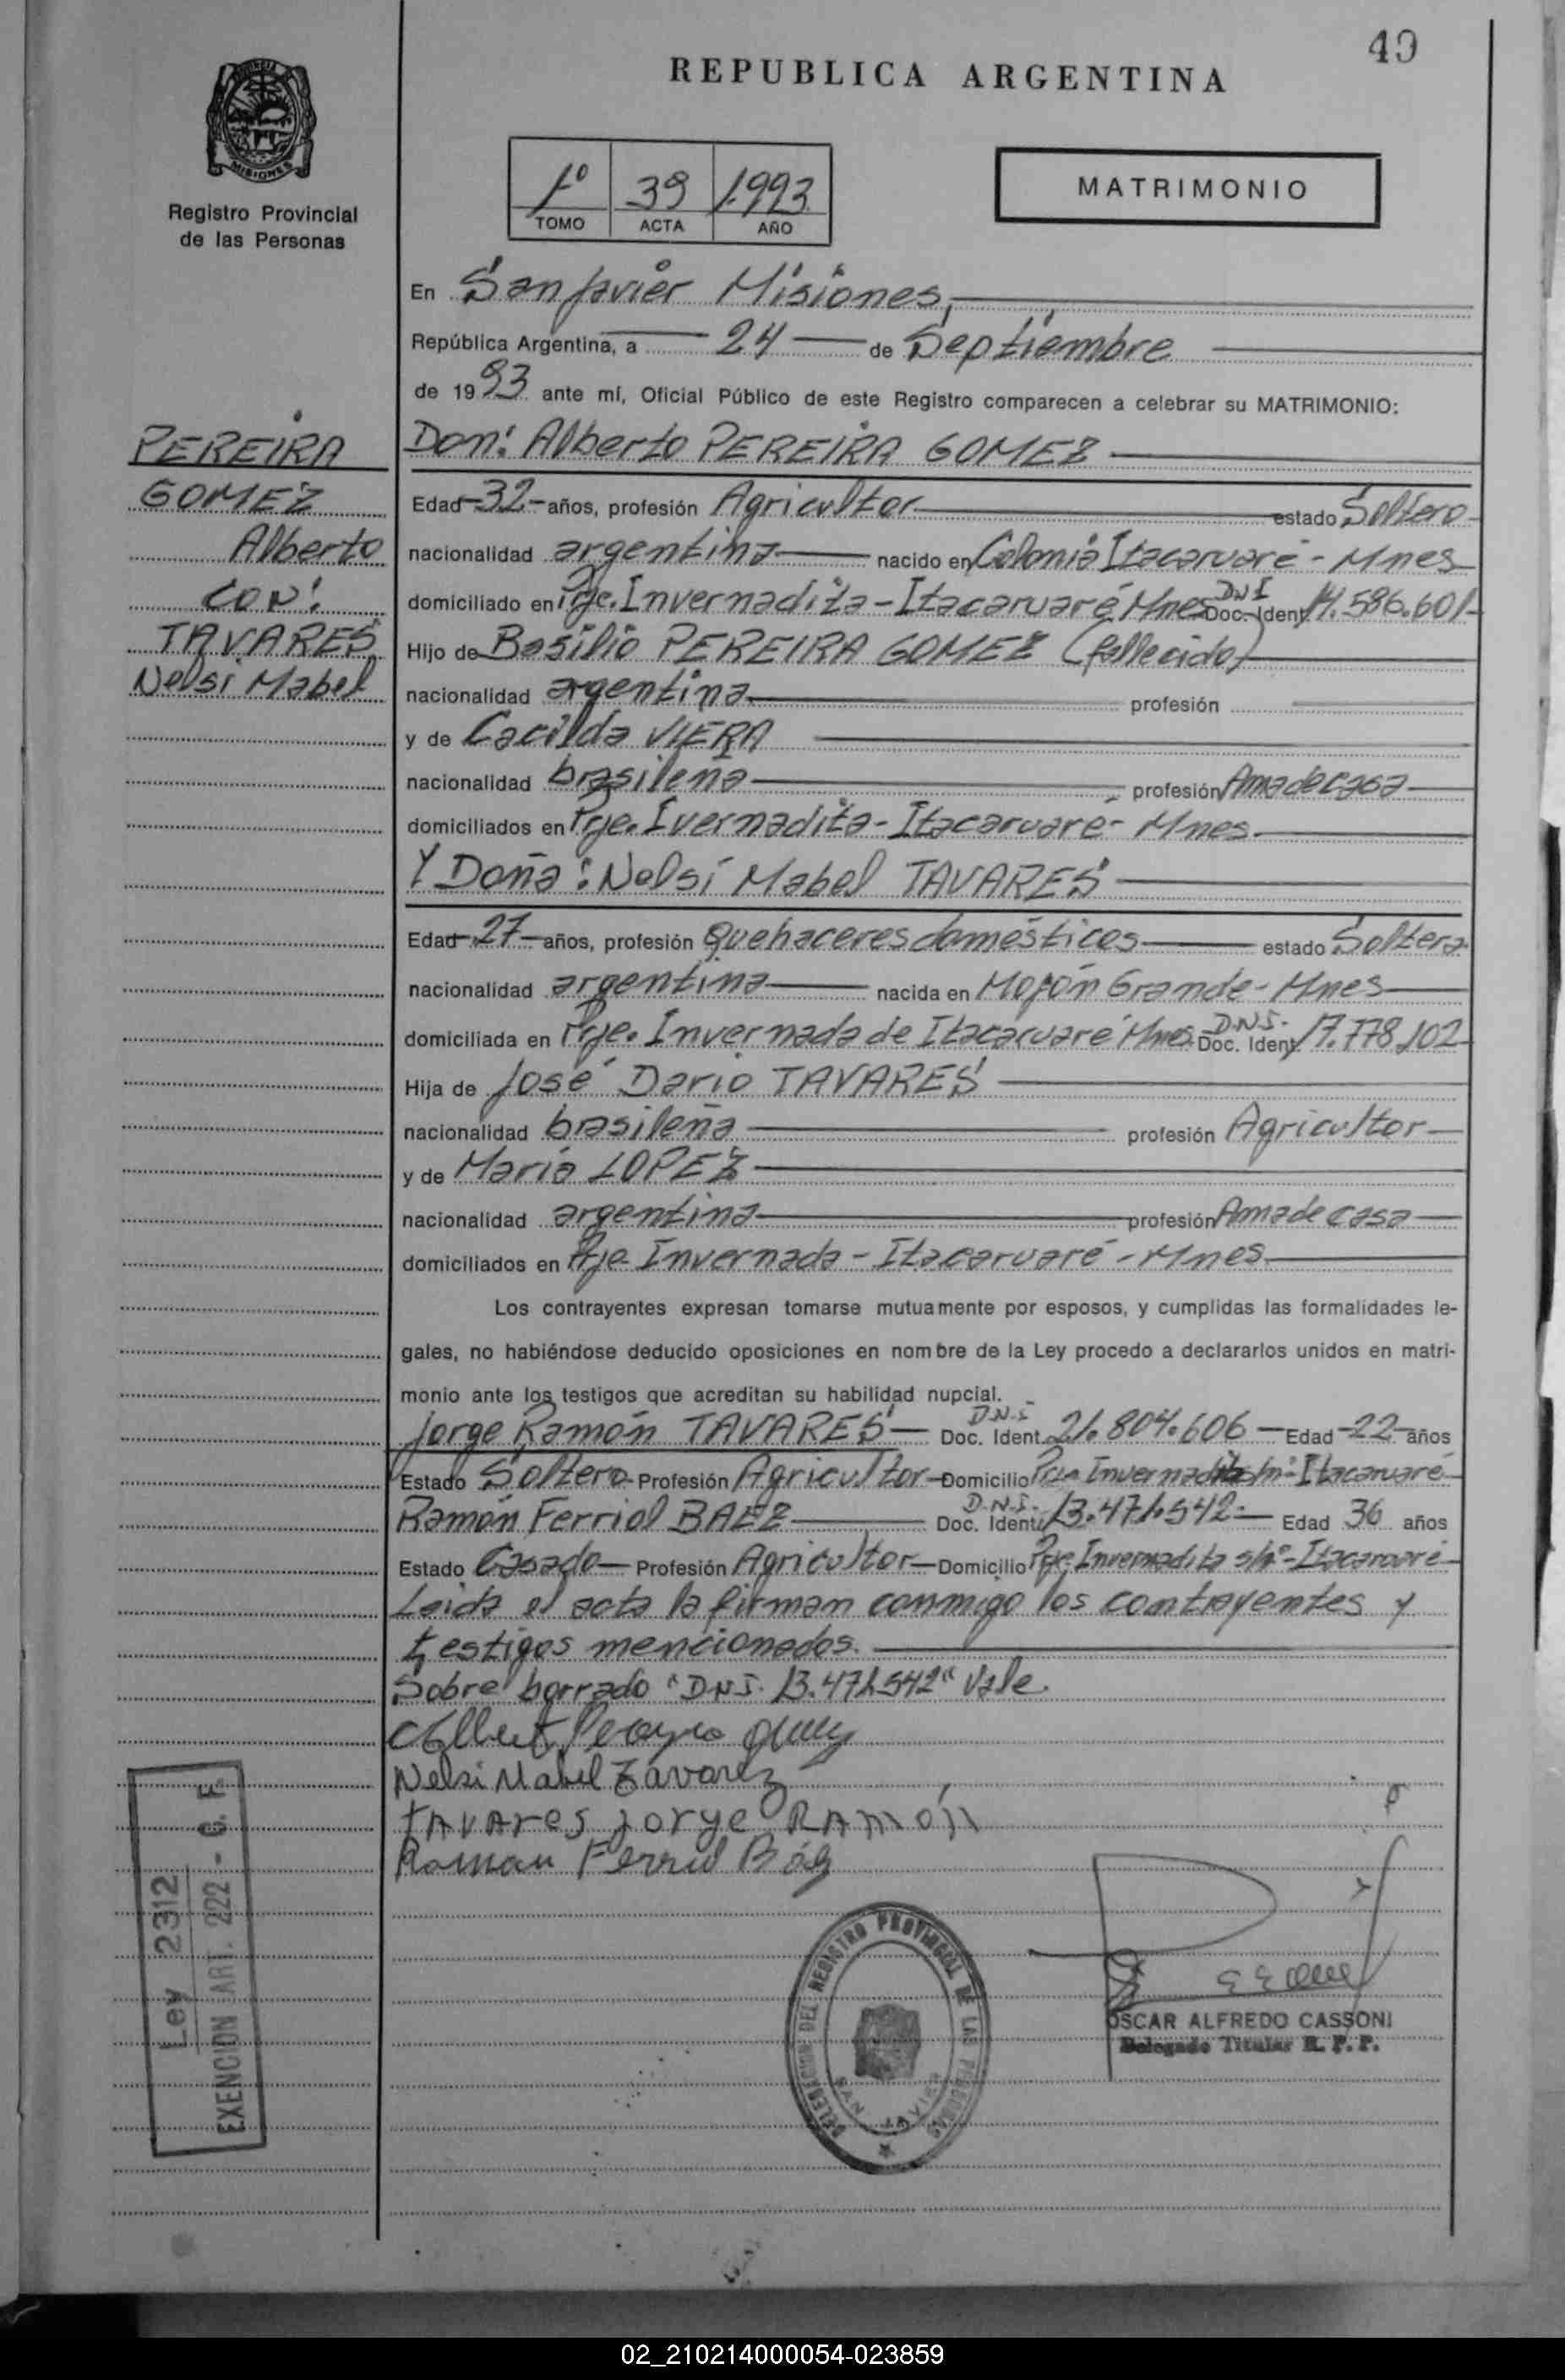 49
REPUBLICA ARGENTINA
MISIONES
Registro Provincial
de las Personas
1º 39 1.993
TOMO ACTA AÑO
MATRIMONIO
En San Javier Misiones,
República Argentina, a 24 de Septiembre
de 1993 ante mí, Oficial Público de este Registro comparecen a celebrar su MATRIMONIO:
PEREIRA
GOMEZ
Alberto
CON:
TAVARES
Nelsi Mabel
Don: Alberto PEREIRA GOMEZ
Edad 32 años, profesión Agricultor estado Soltero
nacionalidad argentina nacido en Colonia Itacaruaré - Mnes
domiciliado en Pje. Invernadita - Itacaruaré Mnes DNI Doc. Ident 14.586.601
Hijo de Basilio PEREIRA GOMEZ (fallecido)
nacionalidad argentina profesión
y de Cacilda VIERA
nacionalidad brasileña profesión Ama de casa
domiciliados en Pje. Ivernadita - Itacaruaré - Mnes.
Y Doña: Nelsi Mabel TAVARES
Edad 27 años, profesión Quehaceres domésticos estado Soltera
nacionalidad argentina nacida en Mojón Grande - Mnes
domiciliada en Pje. Invernada de Itacaruaré Mnes. D.N.I. Doc. Ident 17.778.102
Hija de José Dario TAVARES
nacionalidad brasileña profesión Agricultor
y de Maria LOPEZ
nacionalidad argentina profesión Ama de casa
domiciliados en Pje Invernada - Itacaruaré - Mnes
Los contrayentes expresan tomarse mutuamente por esposos, y cumplidas las formalidades le-
gales, no habiéndose deducido oposiciones en nombre de la Ley procedo a declararlos unidos en matri-
monio ante los testigos que acreditan su habilidad nupcial.
Jorge Ramón TAVARES D.N.I. Doc. Ident. 21.804.606 Edad 22 años
Estado Soltero Profesión Agricultor Domicilio Invernadita s/nº - Itacaruaré
Ramón Ferriol BAEZ D.N.I. Doc. Ident. 13.471.542 Edad 36 años
Estado Casado Profesión Agricultor Domicilio Pje. Invernadita s/nº - Itacaruaré
Leida el acta la firman conmigo los contrayentes y
testigos mencionados.
Sobre borrado "DNI. 13.471.542" Vale.
Nelsi Mabel Tavarez
TAVAres Jorge RAmón
Ramon Ferriol Báez
Ley 2312
EXENCION ART. 222 - C. F.
DELEGACION DEL REGISTRO PROVINCIAL DE LAS PERSONAS
SAN JAVIER
OSCAR ALFREDO CASSONI
Delegado Titular R. P. P.
02_210214000054-023859